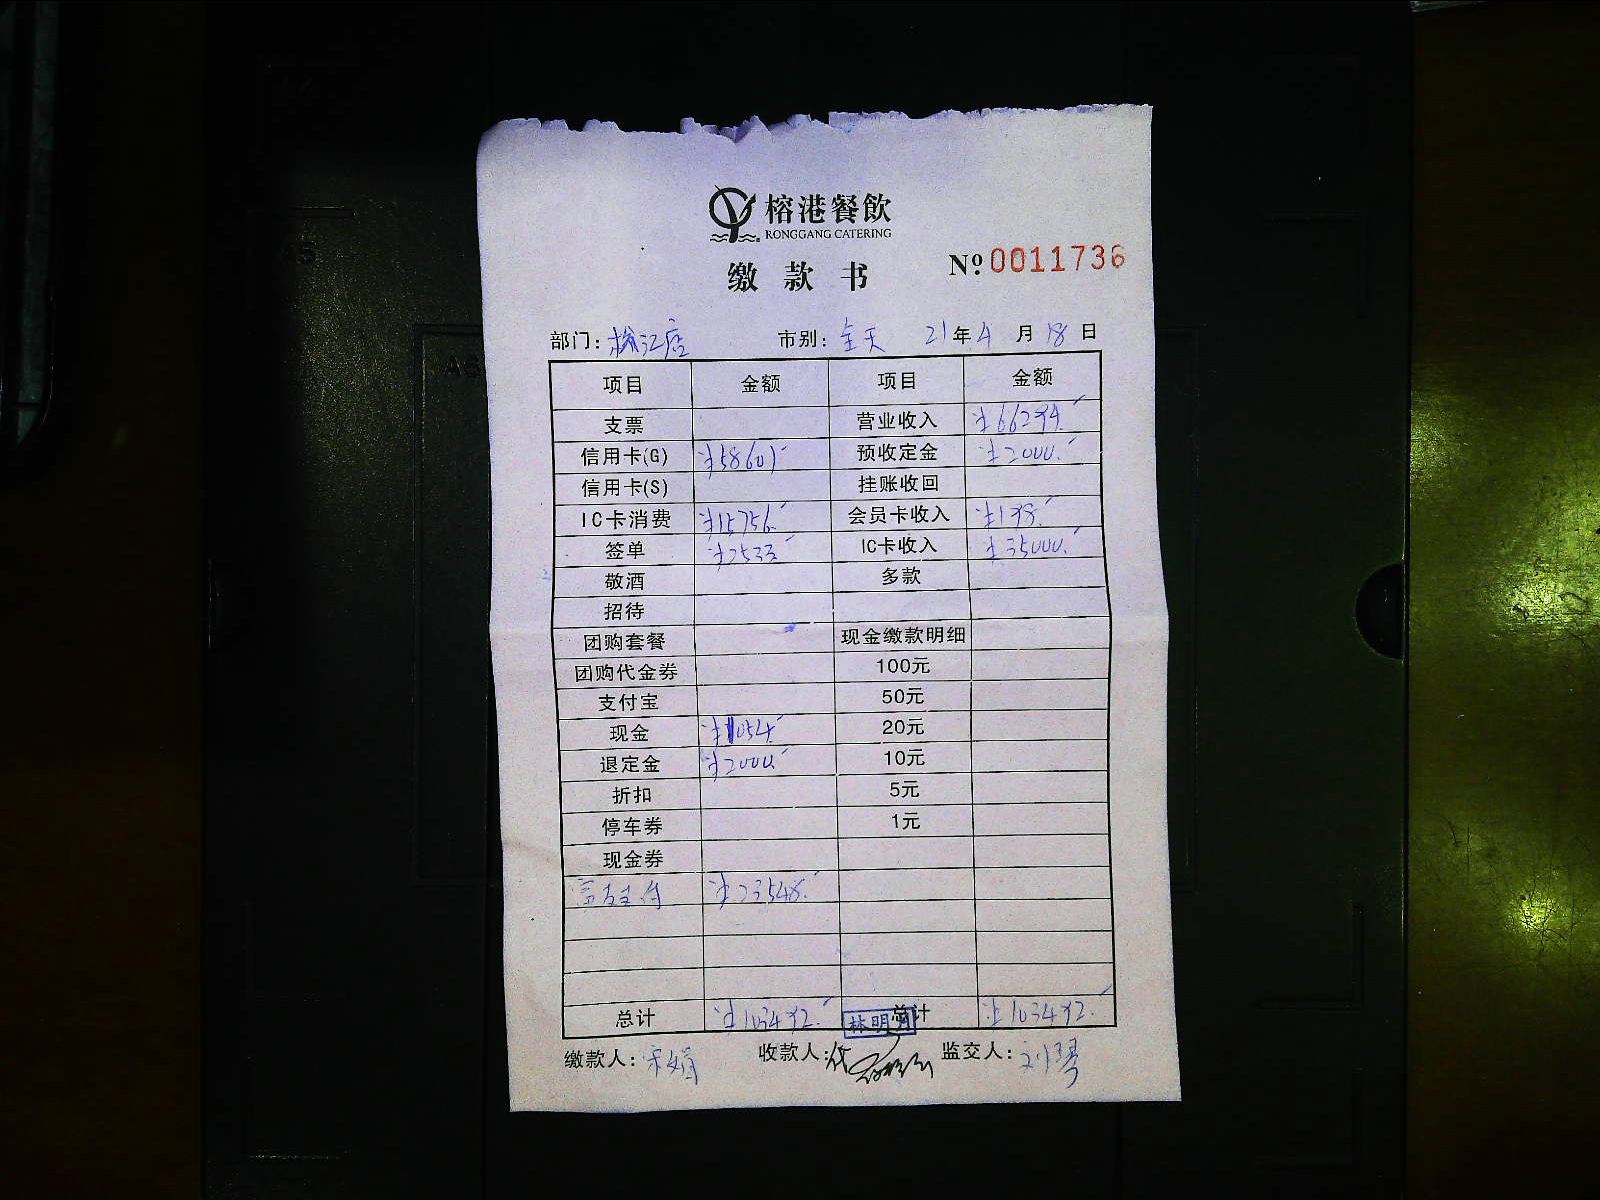 榕港餐飲
RONGGANG CATERING
缴款书 Nº 0011736
部门: 江店 市别: 全天 21年4月18日
项目 金额 项目 金额
支票 营业收入 ¥66294.
信用卡(G) ¥58601 预收定金 ¥2000.
信用卡(S) 挂账收回
IC卡消费 ¥15756. 会员卡收入 ¥198.
签单 ¥2533 IC卡收入 ¥35000.
敬酒 多款
招待
团购套餐 现金缴款明细
团购代金券 100元
支付宝 50元
现金 ¥1054. 20元
退定金 ¥2000. 10元
折扣 5元
停车券 1元
现金券
富友支付 ¥23548.
总计 ¥103492. 总计 ¥103492.
林明月
缴款人: 宋娟 收款人: 监交人: 刘琴